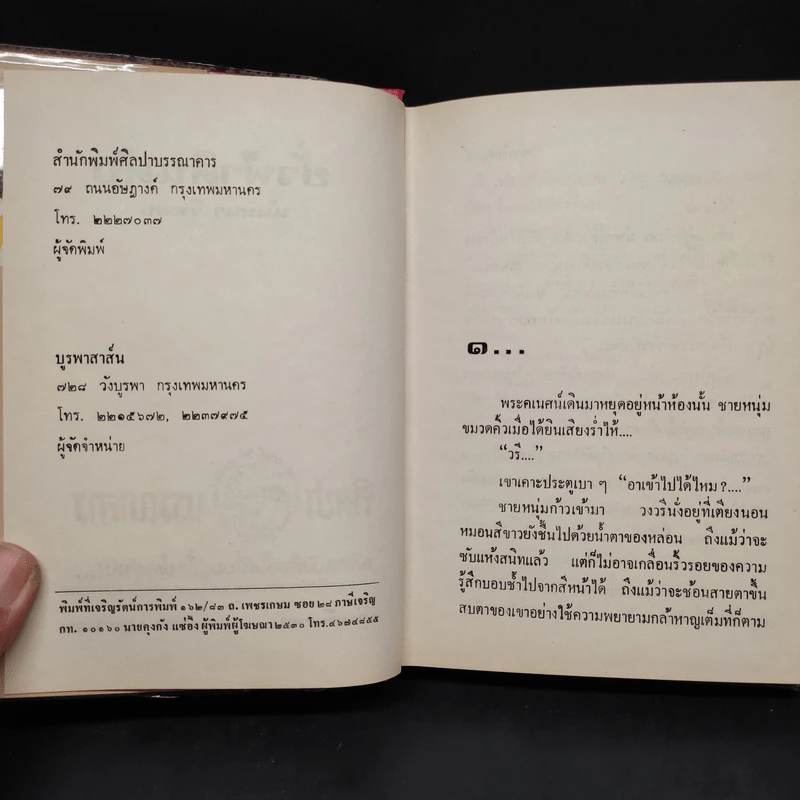 สำนักพิมพ์ศิลปาบรรณาคาร
๗๙ ถนนอัษฎางค์ กรุงเทพมหานคร
โทร. ๒๒๒๗๐๓๗
ผู้จัดพิมพ์
บูรพาสาส์น
๗๒๘ วังบูรพา กรุงเทพมหานคร
โทร. ๒๒๑๕๖๗๒, ๒๒๓๗๙๗๕
ผู้จัดจำหน่าย
พิมพ์ที่เจริญรัตน์การพิมพ์ ๑๖๒/๘๓ ถ. เพชรเกษม ซอย ๒๘ ภาษีเจริญ
กท. ๑๐๑๖๐ นายคุงกัง แซ่อึ้ง ผู้พิมพ์ผู้โฆษณา ๒๕๓๐ โทร.๔๖๗๔๘๕๕
๑...
พระคเนศน์เดินมาหยุดอยู่หน้าห้องนั้น ชายหนุ่ม
ขมวดคิ้วเมื่อได้ยินเสียงร่ำไห้....
“วรี....”
เขาเคาะประตูเบา ๆ “อาเข้าไปได้ไหม ?....”
ชายหนุ่มก้าวเข้ามา วงวรีนั่งอยู่ที่เตียงนอน
หมอนสีขาวยังชื้นไปด้วยน้ำตาของหล่อน ถึงแม้ว่าจะ
ซับแห้งสนิทแล้ว แต่ก็ไม่อาจเกลื่อนริ้วรอยของความ
รู้สึกบอบช้ำไปจากสีหน้าได้ ถึงแม้ว่าจะช้อนสายตาขึ้น
สบตาของเขาอย่างใช้ความพยายามกล้าหาญเต็มที่ก็ตาม